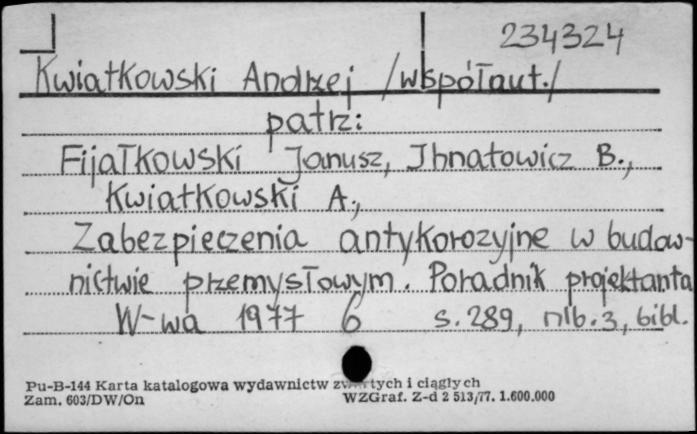 234324
Kwiatkowski Andrzej /współaut./
patrz:
Fijałkowski Janusz, Ihnatowicz B.,
Kwiatkowski A.,
Zabezpieczenia antykorozyjne w budow-
nictwie przemysłowym. Poradnik projektanta
W-wa 1977 6 s. 289, nlb. 3, bibl.
Pu-B-144 Karta katalogowa wydawnictw zwartych i ciągłych
Zam. 603/DW/On WZGraf. Z-d 2 513/77. 1.600.000